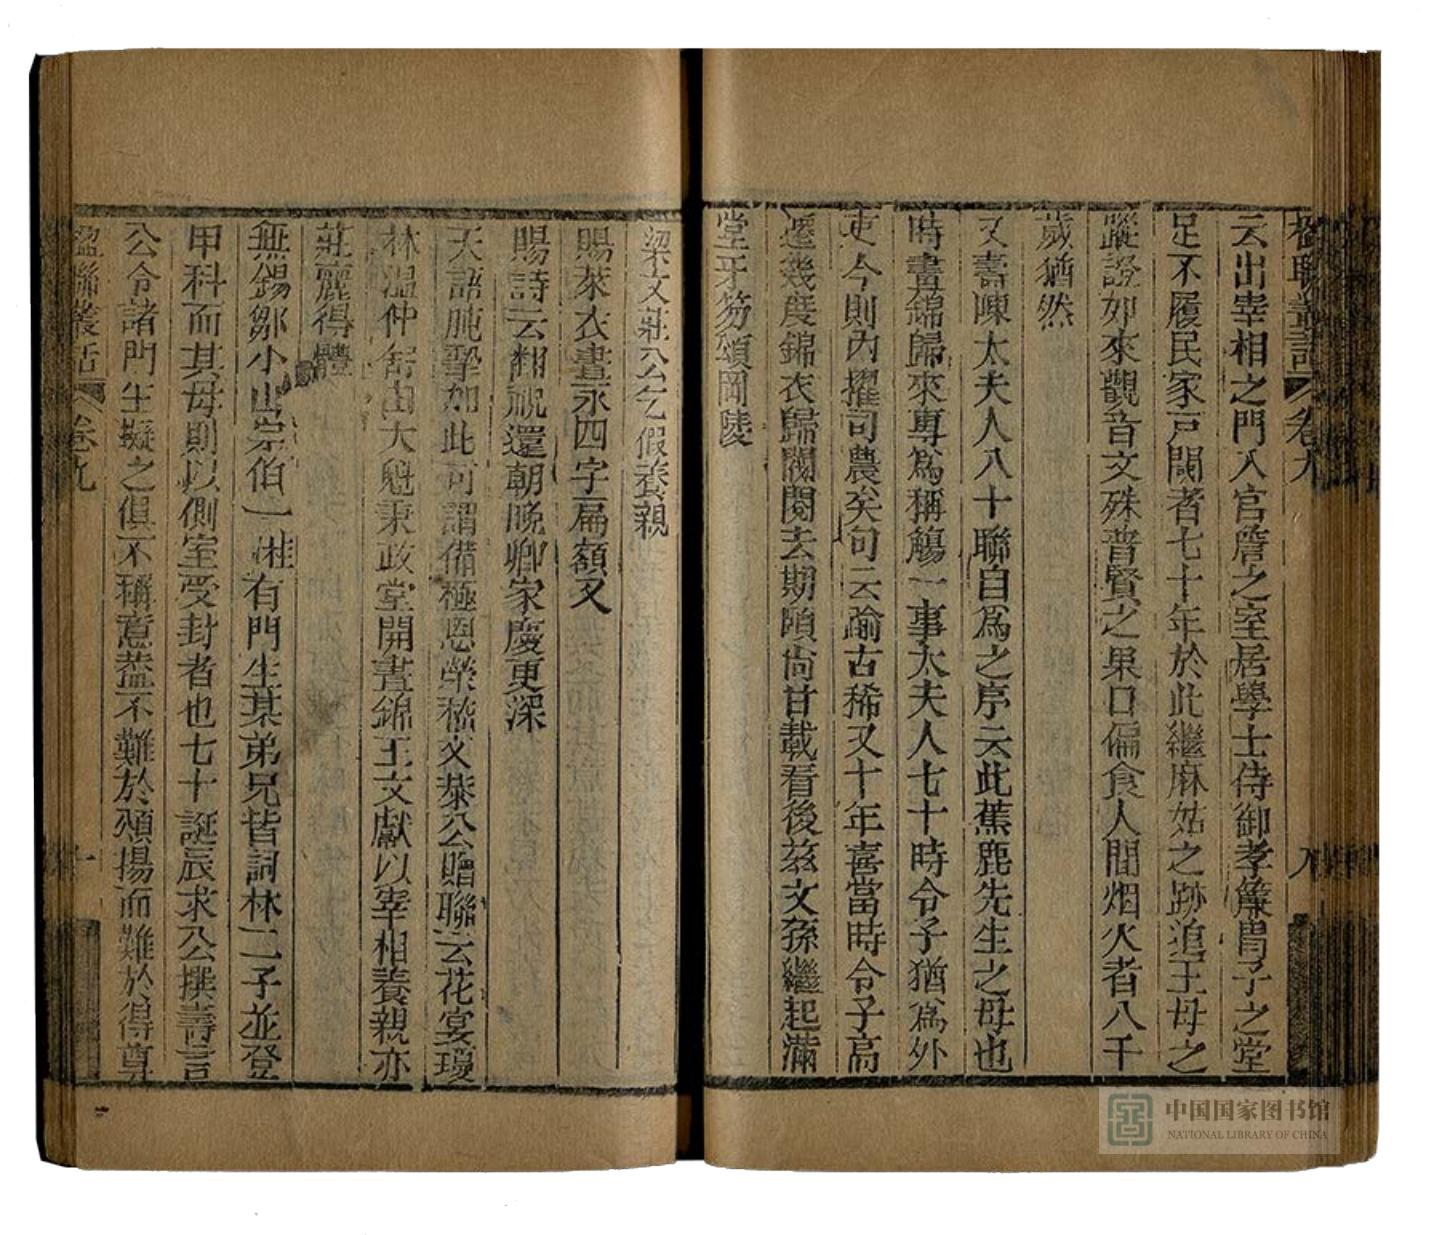 楹聯叢話 卷九 八
云出宰相之門入官詹之室居學士侍御孝廉胄子之堂
足不履民家戸閾者七十年於此繼麻姑之跡追王母之
蹤證如來觀音文殊普賢之果口偏食人間烟火者八千
歲猶然
又壽陳太夫人八十聯自爲之序云此蕉鹿先生之母也
時晝錦歸來專爲稱觴一事太夫人七十時令子猶爲外
吏今則內擢司農矣句云踰古稀又十年喜當時令子高
遷幾度錦衣歸閥閱去期頤尚廿載看後茲文孫繼起滿
堂牙笏頌岡陵
梁文莊公乞假養親
賜萊衣晝永四字扁額又
賜詩云翻祝還朝晚卿家慶更深
天語肫摯如此可謂備極恩榮嵇文恭公贈聯云花宴瓊
林溫仲舒由大魁秉政堂開晝錦王文獻以宰相養親亦
莊麗得體
無錫鄒小山宗伯一桂有門生某弟兄皆詞林二子並登
甲科而其母則以側室受封者也七十誕辰求公撰壽言
公令諸門生擬之俱不稱意蓋不難於頌揚而難於得尊
楹聯叢話 卷九 十
中国国家图书馆
NATIONAL LIBRARY OF CHINA